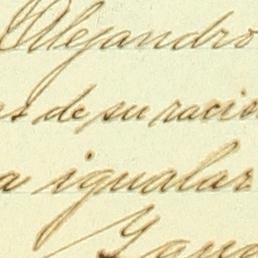 Alejandro
es de su racio
a igualar